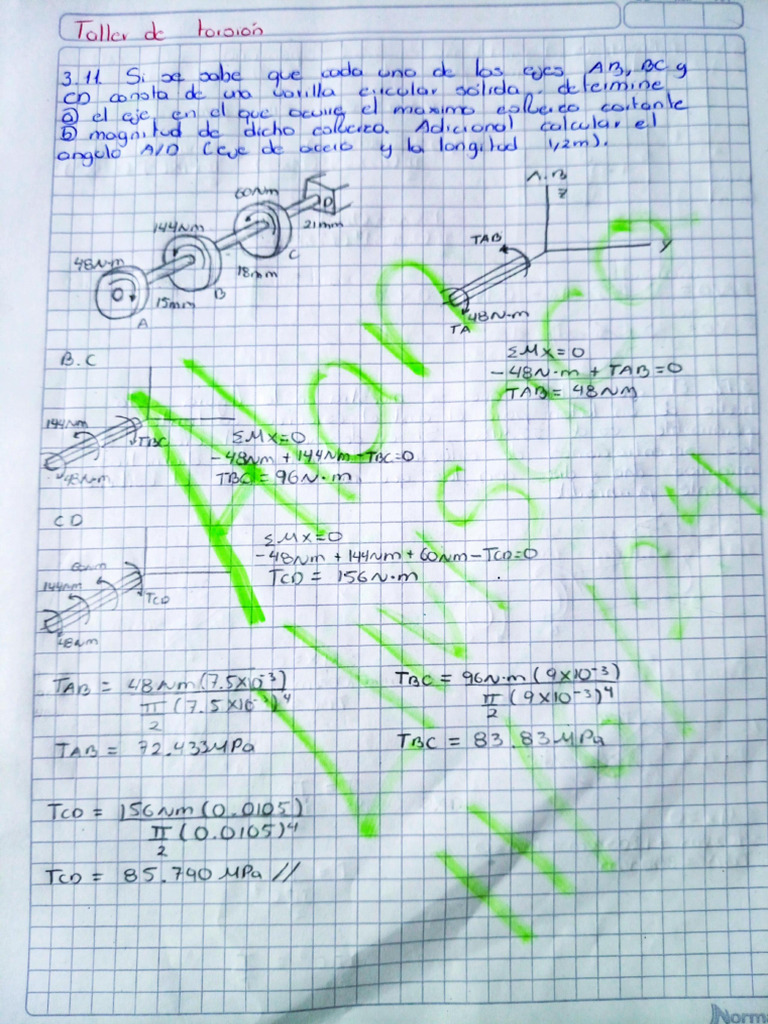 Taller de torsión
3.11 Si se sabe que cada uno de los ejes AB, BC y
CD consta de una varilla circular sólida. determine
ⓐ el eje en el que ocurre el maximo esfuerzo cortante
ⓑ magnitud de dicho esfuerzo. Adicional calcular el
angulo A/D (eje de acero y la longitud 1,2m).
A.B
Z
60Nm
D
144Nm
21mm
TAB
Y
48N·m
C
18mm
B
15mm
A
48N·m
TA
B.C
ΣMX=0
-48N·m + TAB=0
TAB= 48NM
144Nm
TBC
48N·m
ΣMX=0
-48Nm + 144Nm - TBC=0
TBC = 96N·m
CD
ΣMX=0
-48Nm + 144Nm + 60Nm - TCD=0
TCD = 156N·m
60Nm
144Nm
TCD
48Nm
TAB = 48Nm(7.5X10⁻³)
π/2 (7.5X10⁻³)⁴
TBC = 96N·m (9X10⁻³)
π/2 (9X10⁻³)⁴
TAB = 72.433MPa
TBC = 83.83MPa
TCD = 156Nm(0.0105)
π/2 (0.0105)⁴
TCD = 85.790 MPa //
Alan
Norm